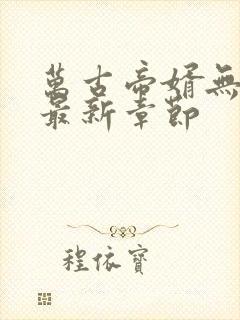 萬古帝婿無
最新章節
程依寶